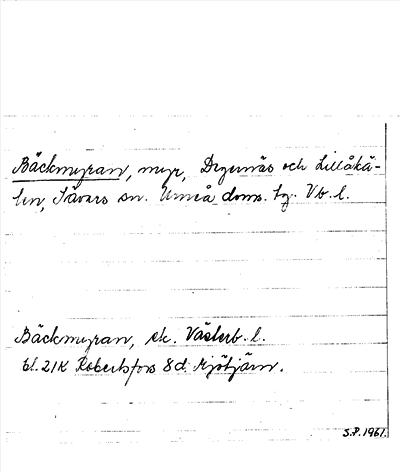 Bäckmyran, myr, Degernäs och Lillåkä-
len, Sävars sn. Umeå doms. tg. Vb. l.
Bäckmyran, ek. Västerb. l.
bl. 21K Robertsfors 8d Mjötjärn.
S.P. 1961.